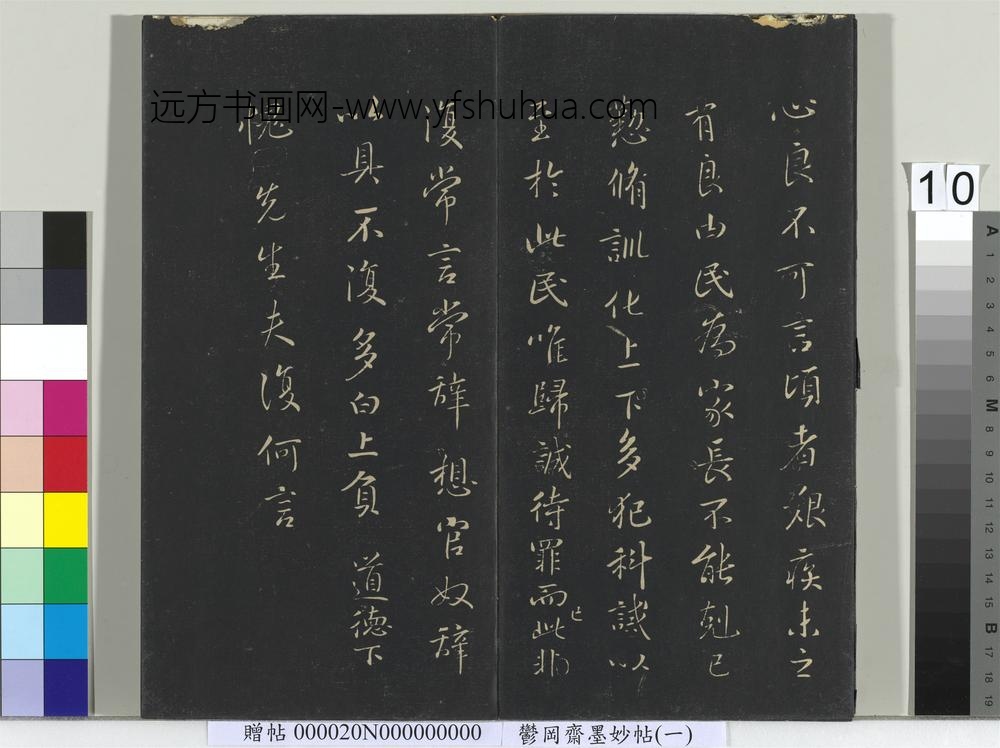 心良不可言頃者艱疾未之
有良由民為家長不能剋己
懃脩訓化上下多犯科誡以
至於此民唯歸誠待罪而已此非
復常言常辭想官奴辭
以具不復多白上負 道德下
愧 先生夫復何言
远方书画网-www.yfshuhua.com
10
A
1
2
3
4
5
6
M
8
9
10
11
12
13
14
15
B
17
18
19
贈帖 000020N000000000 鬱岡齋墨妙帖(一)